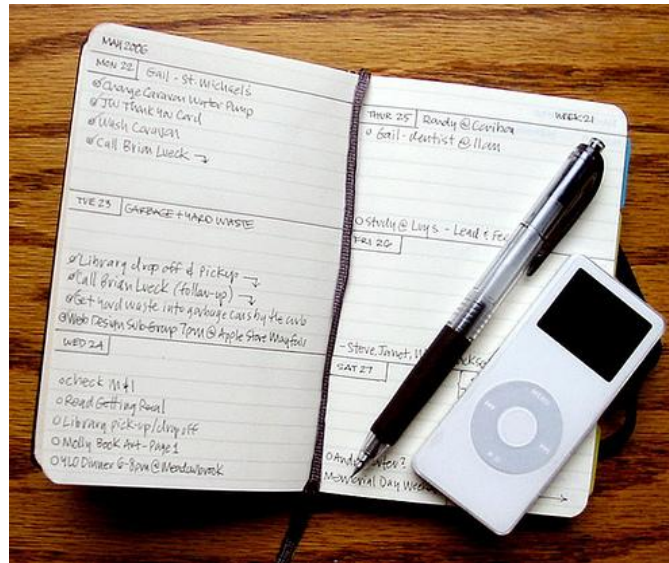 MAY 2006
MON 22
Gail - St. Michael's
Change Caravan Water Pump
JW Thank You Card
Wash Caravan
Call Brian Lueck
TUE 23
GARBAGE + YARD WASTE
Library drop off & pickup
Call Brian Lueck (follow-up)
Get yard waste into garbage cans by the curb
Web Design Sub-Group 7pm @ Apple Store Mayfair
WED 24
check M+1
Read Getting Real
Library pick-up/drop off
Molly Book Art - Page 1
YLO Dinner 6-8pm @ Meadowbrook
WEEK 21
THUR 25
Randy @ Caribou
Gail - dentist @ 11am
Study @ Luy's - Lead &
FRI 26
- Steve, Janet,
SAT 27
Memorial Day
MENU